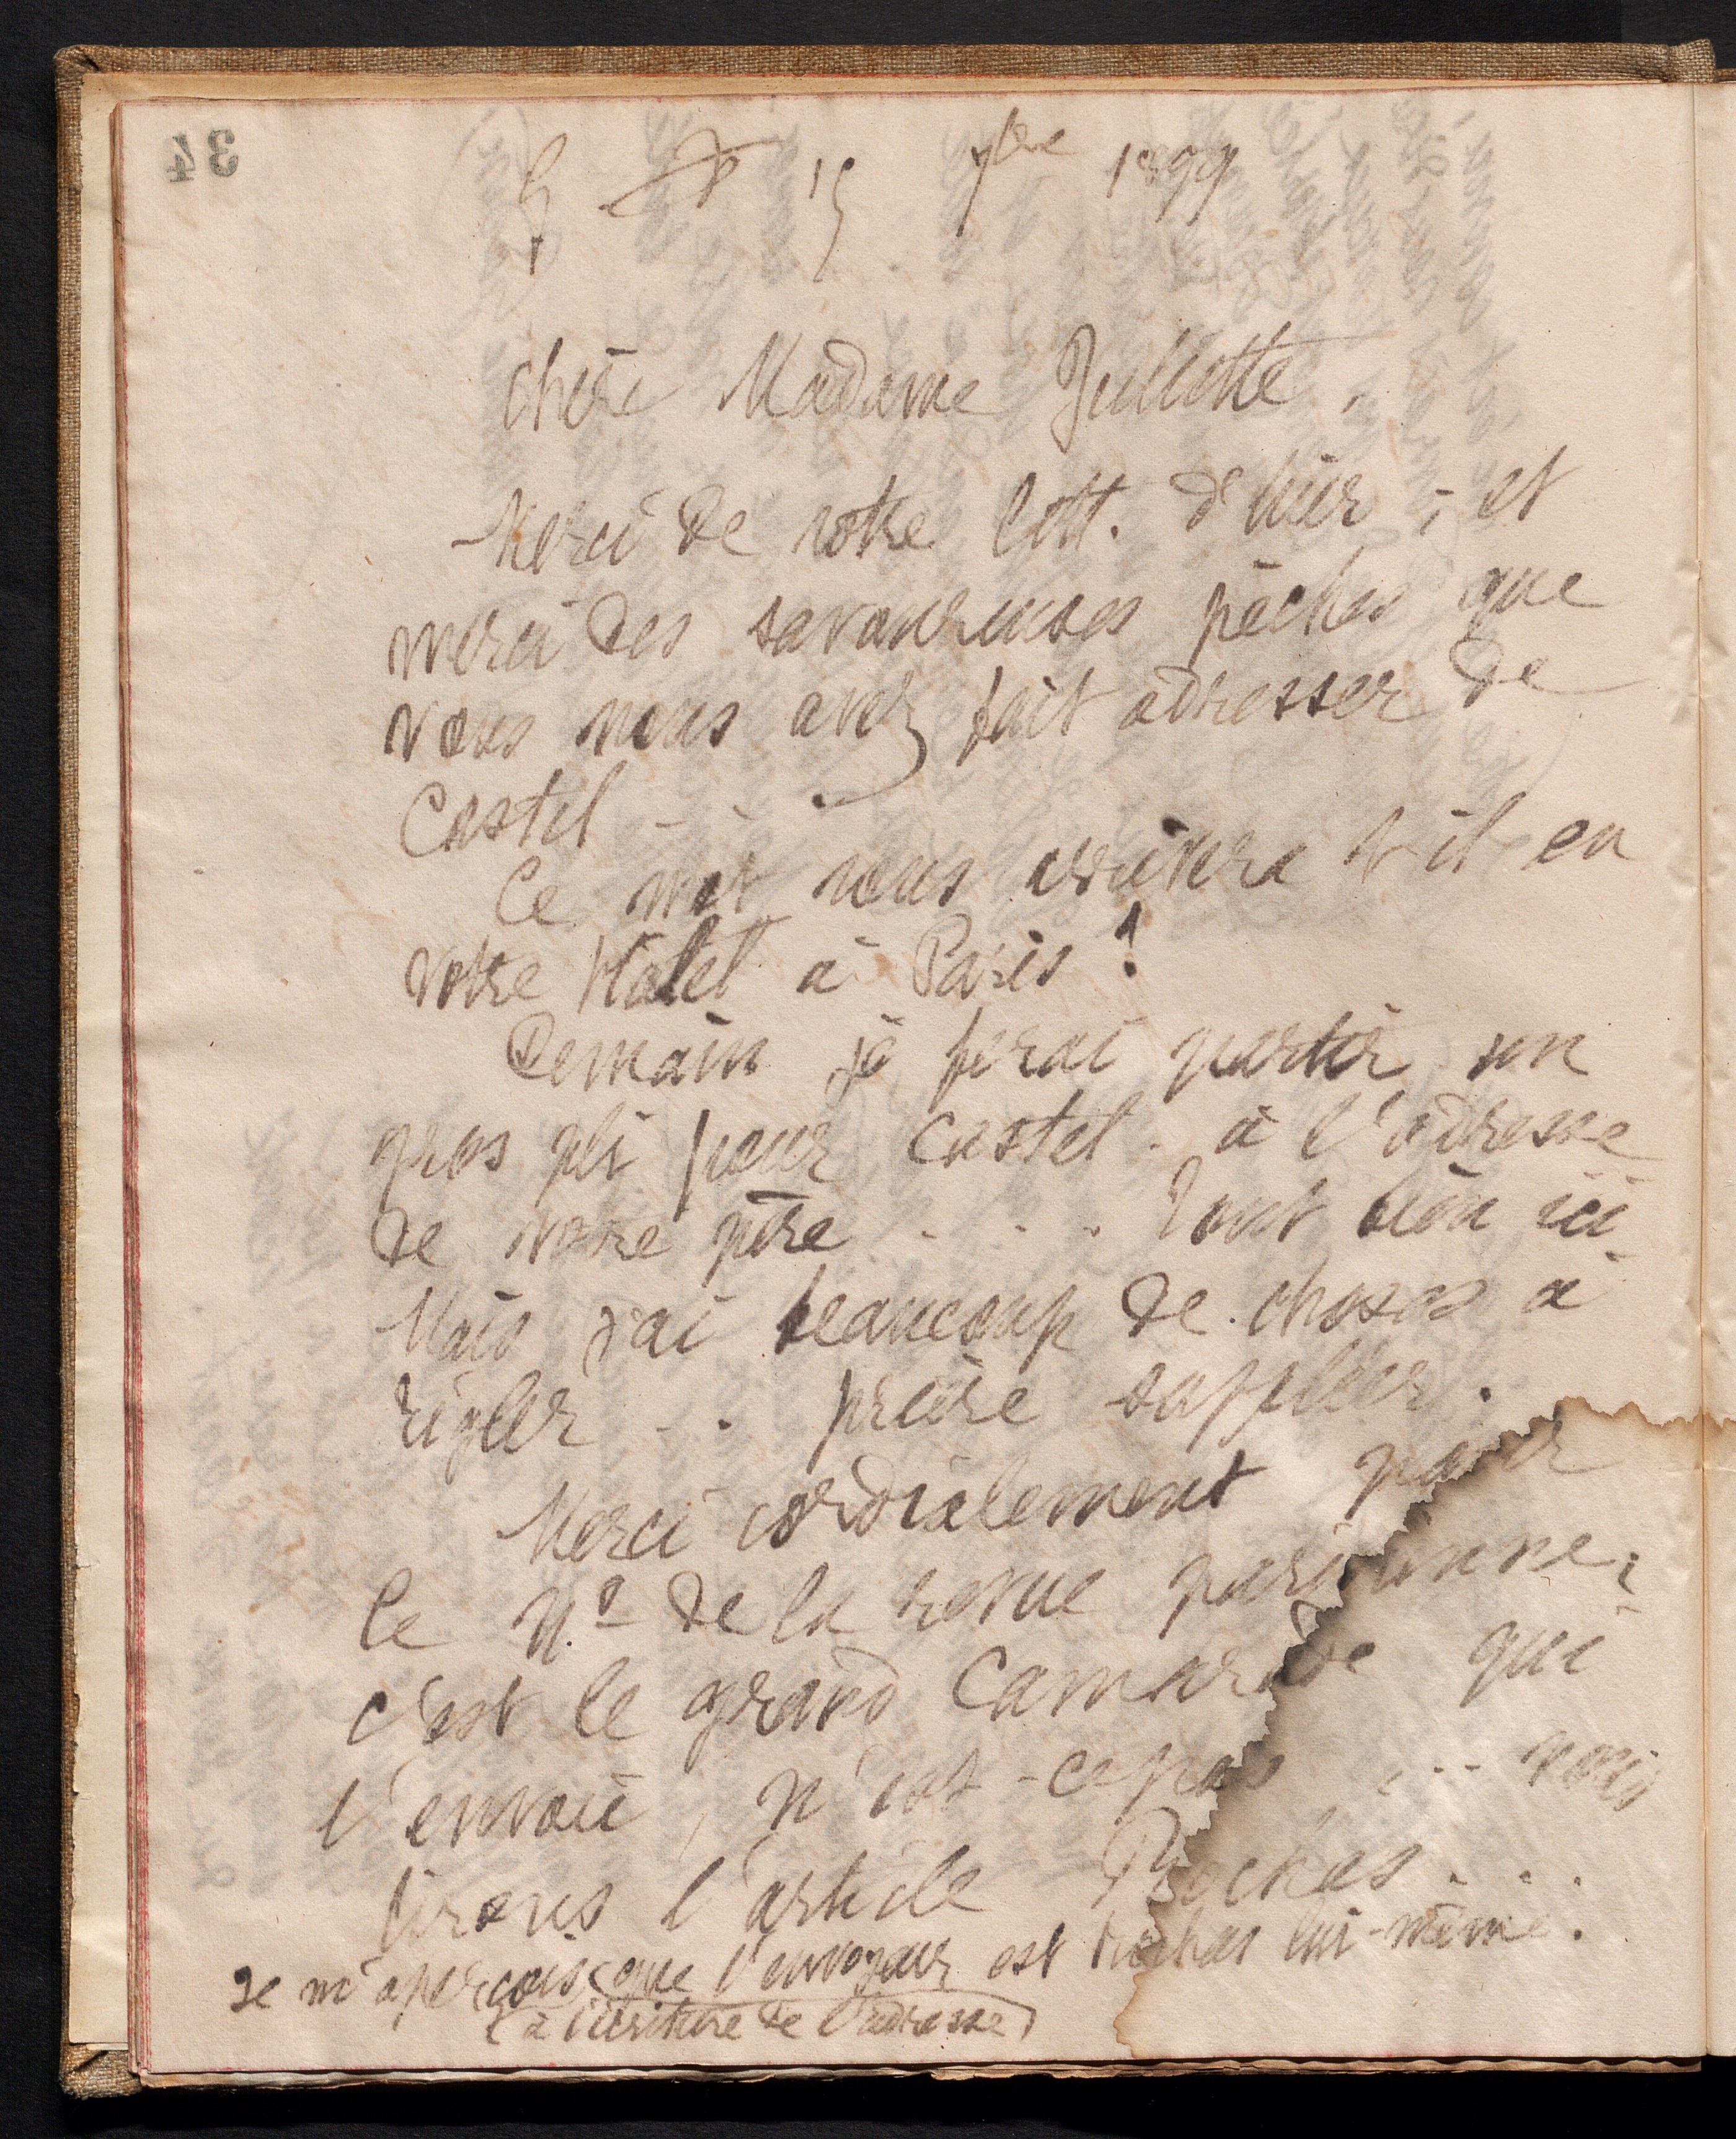 34
15 7bre 1899
Chère Madame Juliette,
Merci de votre lett. d'hier ; et
merci des savoureuses pêches que
vous nous avez fait adresser de
Castel - - -
Ce mot vous arrivera t-il en
votre Hotel à Paris ?
Demain je ferai partir un
gros pli pour Castel - à l'adresse
de votre père . . . Tout bien ici -
Mais j'ai beaucoup de choses à
régler - . prière suppléer.
Merci cordialement pour
le N.º de la revue parisienne ;
c'est le grand Camarade qui
l'envoie, n'est-ce pas ... vais
lirons l'article Rochas . . .
Je m'aperçois que l'envoyeur est Rochas lui-même.
(à l'écriture de l'adresse)